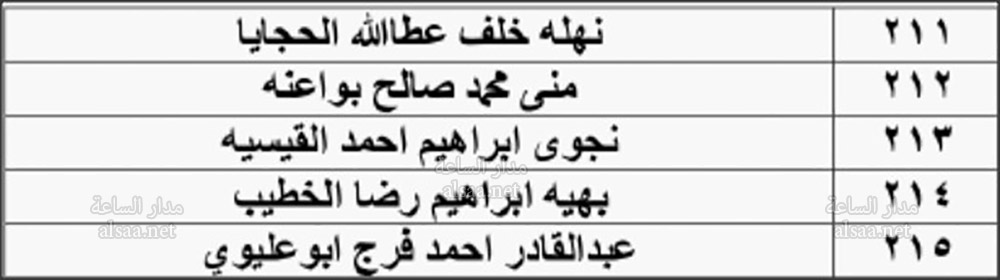 ٢١١ نهله خلف عطاالله الحجايا
٢١٢ منى محمد صالح بواعنه
٢١٣ نجوى ابراهيم احمد القيسيه
٢١٤ بهيه ابراهيم رضا الخطيب
٢١٥ عبدالقادر احمد فرج ابوعليوي
مدار الساعة
alsaa.net
مدار الساعة
alsaa.net
مدار الساعة
alsaa.net